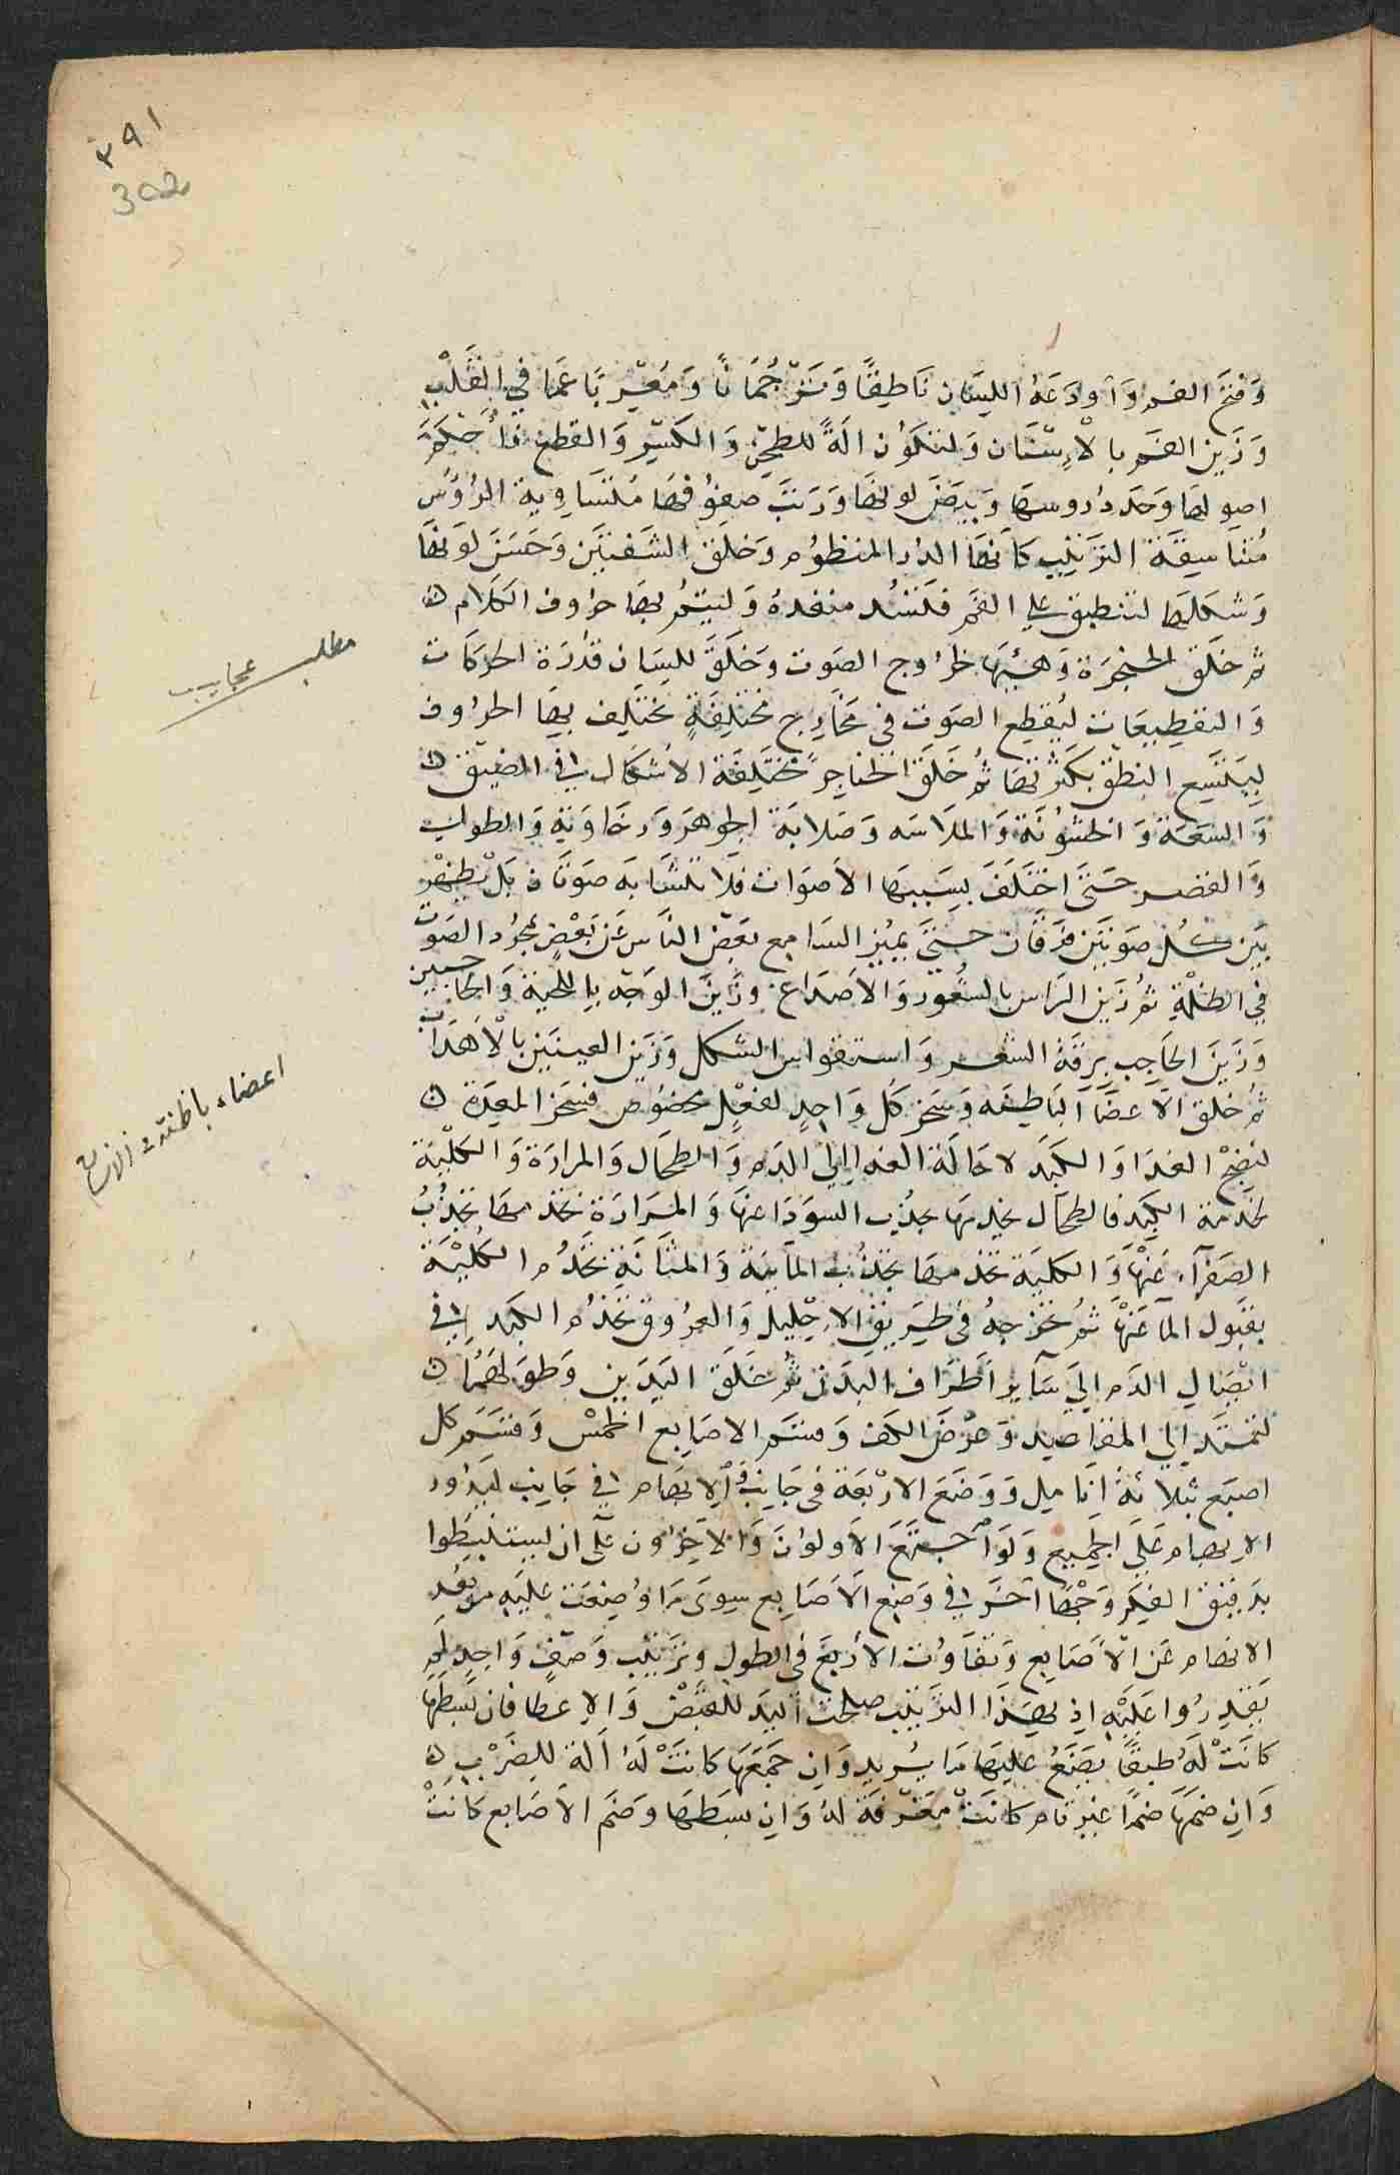 ٣٩١
302
وَفتحَ الفم وَأودَعَهُ اللِسَان نَاطِقًا وَتَرْجُمَانًا وَمُعْرِبًا عَمَا في القَلْبِ
وَزَين الفَم بالْأِسْنَان وَلتكوُن الَةً للطحْن وَالكسْر وَالقطع فأَحْكَمَ
اصولهَا وَحَدد رُوسهَا وَبيضَ لونهَا وَرَتبَ صفوُفهَا مُتسَاوِية الرُؤوُس
مُتنَاسِقَة الترْتيْب كأنهَا الدر المنظوُم وَخلقَ الشَفتَيَن وَحَسَنَ لوَنهَا
وَشكلهَا لتنطبق علي الفَم فتَسُد منفدهُ وَليتمُ بهَا حرُوف الكلَام
ثم خلَق الحَنجرَة وَهيّئهَا لخرُوج الصَوت وَخلَقَ للِسَان قدُرَة الحركَات
وَالتقطِيعَات ليُقطِع الصَوتَ في مَخَارِج مُختلِفَةٍ تختَلِف بهَا الحرُوف
لِيتَسِع النطقْ بكَثْرتهَا ثمُ خَلَقَ الحناجِرَ مُختَلِفَة الأشكَال في الضيْق
وَالسَعَة وَالخشوُنَة وَالملَاسَه وَصَلابَة الجوهَر وَرخَاوَتِه وَالطول
وَالقصر حَتىَ اختَلَفَ بسَببهَا الأصوَات فلَا تتشَابَه صَوتَان بَلْ يظهْر
بَين كُل صوَتيَن فرَقَان حَتيَ يميْز السَامِع بَعض الناَس عَن بَعْضٍ بمجرُد الصَوت
في الظلْمةِ ثمُ زَيَن الرَاس بالشعُور وَالأصْدَاغ وزَينَ الوَجه بالِلحية وَالحاجبين
وَزَينَ الحَاجب بِرقَة الشعْر وَاستقواس الشكل وَزَين العينَين بالْأهدَاب
ثمُ خلق الأعضَآ البَاطِنَه وَسَخَر كل وَاحِدٍ لفِعْلٍ مخصُوص فسَخر المِعدَة
لنِضجْ الغدَا وَالكبَد لاحَالَة الغدا إلىَ الدَم وَالطحَال وَالمرارَة وَالكلْيَة
لخَدمة الكبِد فالطحَال يخدِمهَا بجذُب السوَدَا عنهَا وَالمَرارَة تخدمهَا بجَذُبُ
الصَفرَآء عَنهَا وَالكلْيَة تخدمهَا بجَذُب المآئيَة وَالمثَانَة تخدُم الكُليْة
بقبُول المآ عَنهَا ثمُ تخرْجهُ في طَريقِ الاحِليِل وَالعرُوق تخدُم الكبَد في
ايْصَالِ الدَم اليَ سَآير أطرَاف البدَن ثمُ خلَقَ اليَدَين وَطوَلهُمَا
لتمتَد إلي المقاصِد وَعرّضَ الكف وَقسَم الاصَابِع الخمسْ وَقسَمَ كل
اصبَع بثلَاثة انَامِل وَوَضَعَ الارْبَعَة في جَانِبٍ وَالابهَام في جَانِب ليَدُور
الابهام عَلىَ الجمِيع وَلَوْ اجتَمعَ الأوَلوُنَ وَالآخِرُون علَى ان ليستنبِطوا
بدَقيْق الفِكر وَجْهًا آخَرَ في وَضِع الأصَابِع سِوىَ مَا وُضِعَتْ عليَهِ من بعُد
الابهَام عَن الأصَابِع وَتفَاوُت الأربَع في الطول وتَرتيْب وَصَفٍ وَاحِدٍ لَم
يَقدِرُوا عَلَيْهِ اذ بهَذَا الترتِيب صلحَت اليَد للقَبضْ وَالاعطا فان بَسطَهَا
كَانَتْ لَهُ طبقًا يَضَعُ عليهَا مَا يُريد وَان جَمَعَهَا كانَتْ لَهُ آلَة للِضَرْبِ
وَان ضَمهَا ضَمًا غير تام كَانَتْ مِغَرْفَة لَهُ وَان بسَطهَا وَضَم الأصَابع كَانَتْ
مطلب عجايب
اعضاء باطنه